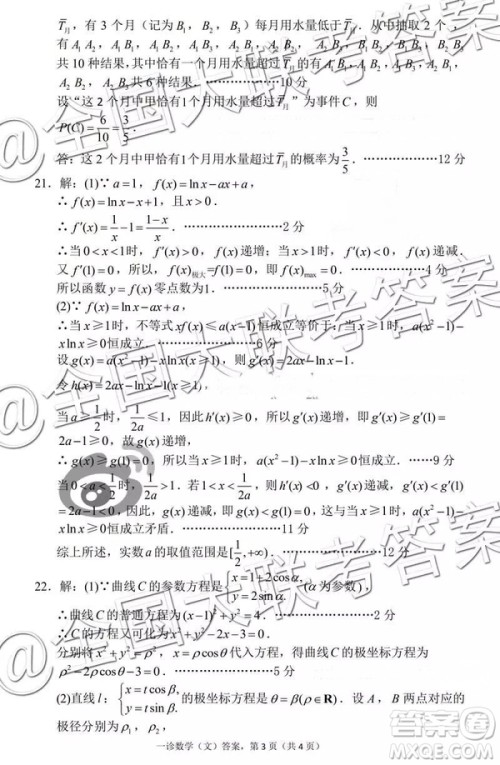 T̄月，有 3 个月（记为 B₁，B₂，B₃）每月用水量低于 T̄月．从中抽取 2 个，
有 A₁A₂，A₁B₁，A₁B₂，A₁B₃，A₂B₁，A₂B₂，A₂B₃，B₁B₂，B₁B₃，B₂B₃
共 10 种结果，其中恰有一个月用水量超过 T̄月 的有 A₁B₁，A₁B₂，A₁B₃，A₂B₁，
A₂B₂，A₂B₃ 共 6 种结果．………………10 分
设“这 2 个月中甲恰有 1 个月用水量超过 T̄月”为事件 C，则
P(C)=6/10=3/5．
答：这 2 个月中甲恰有 1 个月用水量超过 T̄月 的概率为 3/5．………………12 分
21．解：(1)∵a=1，f(x)=lnx-ax+a，
∴f(x)=lnx-x+1，且 x>0．
∴f′(x)=1/x-1=(1-x)/x．………………2 分
∴当 0<x<1 时，f′(x)>0，f(x) 递增；当 x>1 时，f′(x)<0，f(x) 递减．
又 f′(1)=0，所以，f(x)极大=f(1)=0，即 f(x)max=0．………………4 分
所以函数 y=f(x) 零点数为 1．………………5 分
(2)∵f(x)=lnx-ax+a，
∴当 x≥1 时，不等式 恒成立等价于：当 x≥1 时，a(x²-1)-
xlnx≥0 恒成立．………………6 分
设 g(x)=a(x²-1)-xlnx(x≥1)，则 g′(x)=2ax-lnx-1．
令 h(x)=2ax-lnx-1(x≥1)，
当 a≥1/2 时，1/2a≤1，因此 h′(x)≥0，所以 h(x) 递增，即 g′(x)≥g′(1)=
2a-1≥0，故 g(x) 递增，
∴g(x)≥g(1)=0，即当 x≥1 时，a(x²-1)-xlnx≥0 恒成立．……9 分
当 0<a<1/2 时，1/2a>1．若 h′(x)<0，g′(x) 递减，g′(x)≤g′(1)=
2a-1<0，g(x) 递减，g(x)≤g(1)=0，这与当 x≥1 时，a(x²-1)-xlnx≥0
恒成立矛盾．………………11 分
综上所述，实数 a 的取值范围是[1/2,+∞)．………………12 分
22．解：(1)∵曲线 C 的参数方程是{x=1+2cosα, y=2sinα.(α为参数)，
∴曲线 C 的普通方程为(x-1)²+y²=4．………………2 分
∴曲线 C 又可化为 x²+y²-2x-3=0．
分别将 x²+y²=ρ²，x=ρcosθ 代入方程，得曲线 C 的极坐标方程为
ρ²-2ρcosθ-3=0．………………5 分
(2)直线 l：{x=tcosβ, y=tsinβ. 的极坐标方程是 θ=β(ρ∈R)．设 A，B 两点的
极径分别为 ρ₁，ρ₂，
一诊数学（文）答案，第 3 页（共 4 页）
@全国大联考答案
@全国大联考答案